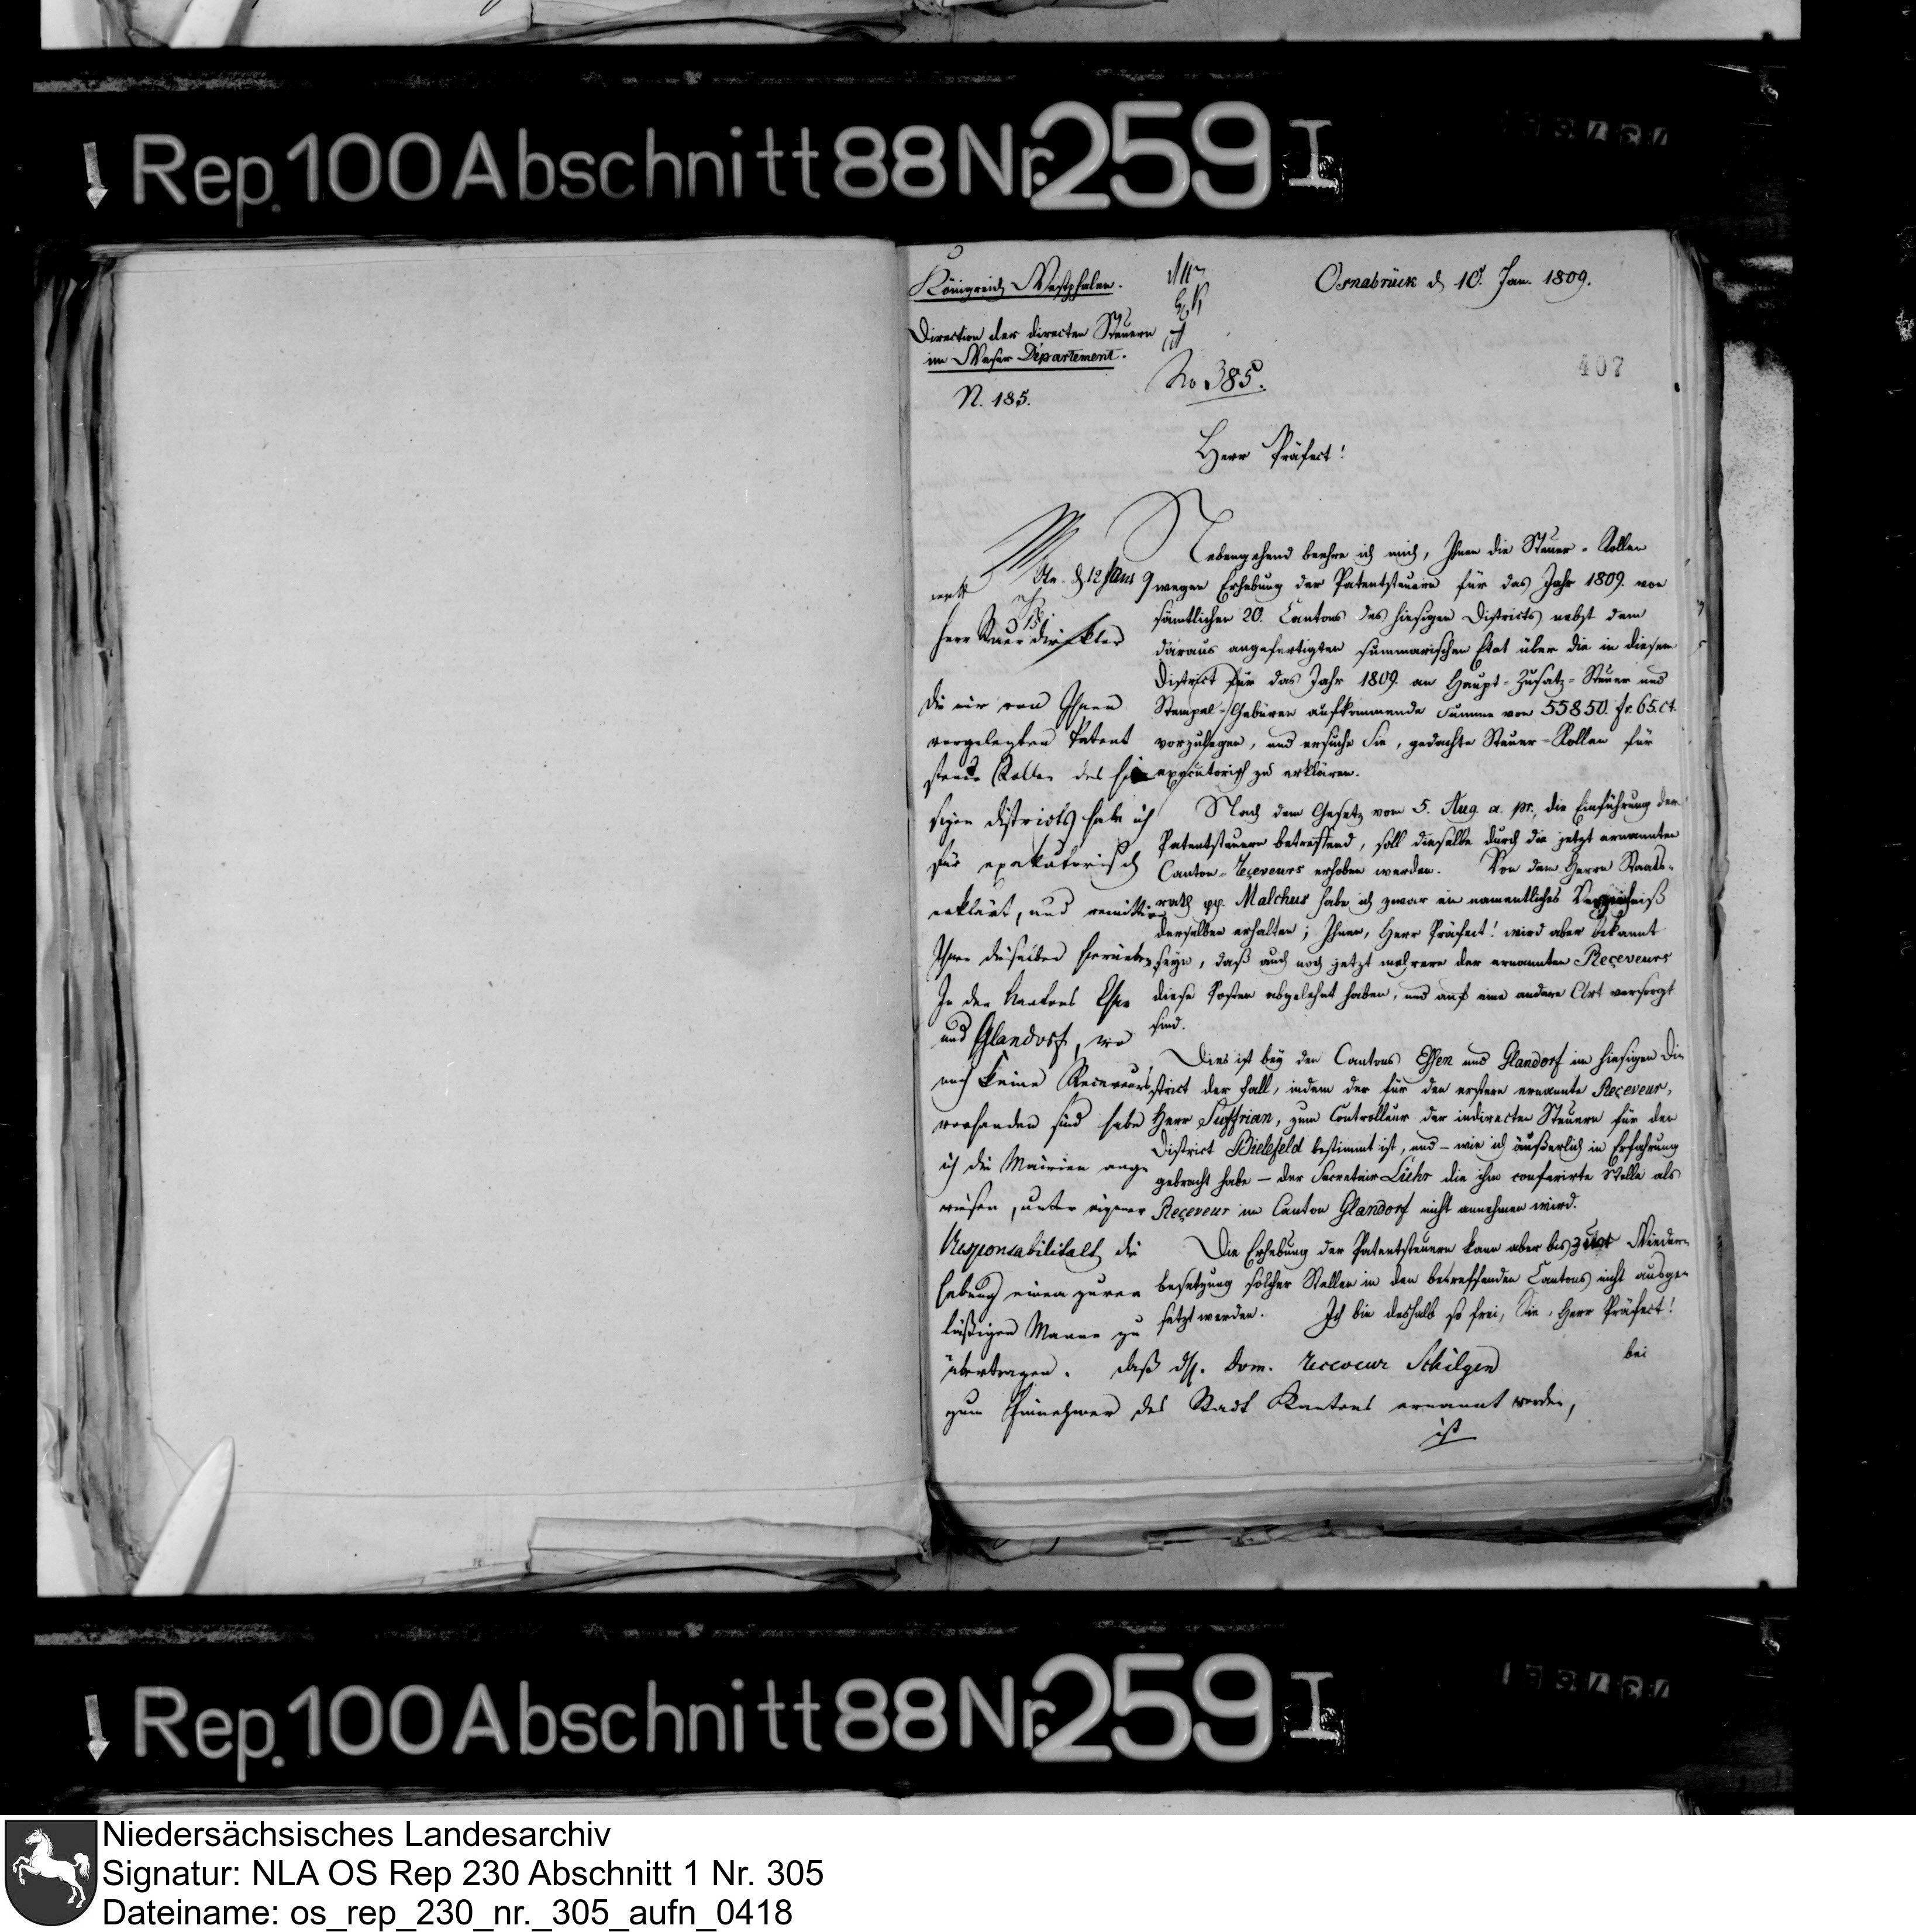 Rep. 100 Abschnitt 88 Nr. 259 I
Königreich Westphalen.
Direction der directen Steuern
im Weser Département.
N. 185.
No 385.
Osnabrück d 10. Jan. 1809.
407
Herr Präfect!
Nebengehend beehre ich mich, Ihnen die Steuer-Rollen
wegen Erhebung der Patentsteuern für das Jahr 1809. von
sämtlichen 20. Cantons des hiesigen Districts nebst dem
daraus angefertigten summarischen Etat über die in diesem
District für das Jahr 1809. an Haupt-Zusatz-Steuer und
Stempel-Gebüren aufkommende Summe von 55850. fr. 65. ct.
vorzulegen, und ersuche Sie, gedachte Steuer-Rollen für
executorisch zu erklären.
Nach dem Gesetz vom 5. Aug. a. pr., die Einführung der
Patentsteuern betreffend, soll dieselbe durch die jetzt ernannten
Canton-Reçeveurs erhoben werden. Von dem Herrn Staats-
rath pp. Malchus habe ich zwar ein namentliches Verzeichniß
derselben erhalten; Ihnen, Herr Präfect! wird aber bekannt
seyn, daß auch noch jetzt mehrere der ernannten Reçeveurs
diese Posten abgelehnt haben, und auf eine andere Art versorgt
sind.
Dies ist bey den Cantons Essen und Glandorf im hiesigen Di-
strict der Fall, indem der für den erstern ernannte Reçeveur,
Herr Suffrian, zum Controlleur der indirecten Steuern für den
District Bielefeld bestimmt ist, und – wie ich äußerlich in Erfahrung
gebracht habe – der Secretair Lührs die ihm conferirte Stelle als
Reçeveur im Canton Glandorf nicht annehmen wird.
Die Erhebung der Patentsteuern kann aber bis zur Wieder-
besetzung solcher Stellen in den betreffenden Cantons nicht ausge-
setzt werden. Ich bin deshalb so frei, Sie, Herr Präfect!
bei
d 12 Jan 9
Herr Steuer direktor
die mir von Ihnen
vorgelegten Patent
steuer Rollen des hie
sigen districts habe ich
für exekutorisch
erklärt, und remittire
Ihnen dieselben hierneben
In den Kantons Essen
und Glandorf, wo
noch keine Receveurs
vorhanden sind habe
ich die Mairien ange
wiesen, unter eigener
Responsabilitaet die
Hebung einem zuver
läßigen Manne zu
übertragen. daß dH. dom. receveur Schilgen
zum Einnehmer des Stadt Kantons ernannt worden,
ist
Rep. 100 Abschnitt 88 Nr. 259 I
Niedersächsisches Landesarchiv
Signatur: NLA OS Rep 230 Abschnitt 1 Nr. 305
Dateiname: os_rep_230_nr._305_aufn_0418